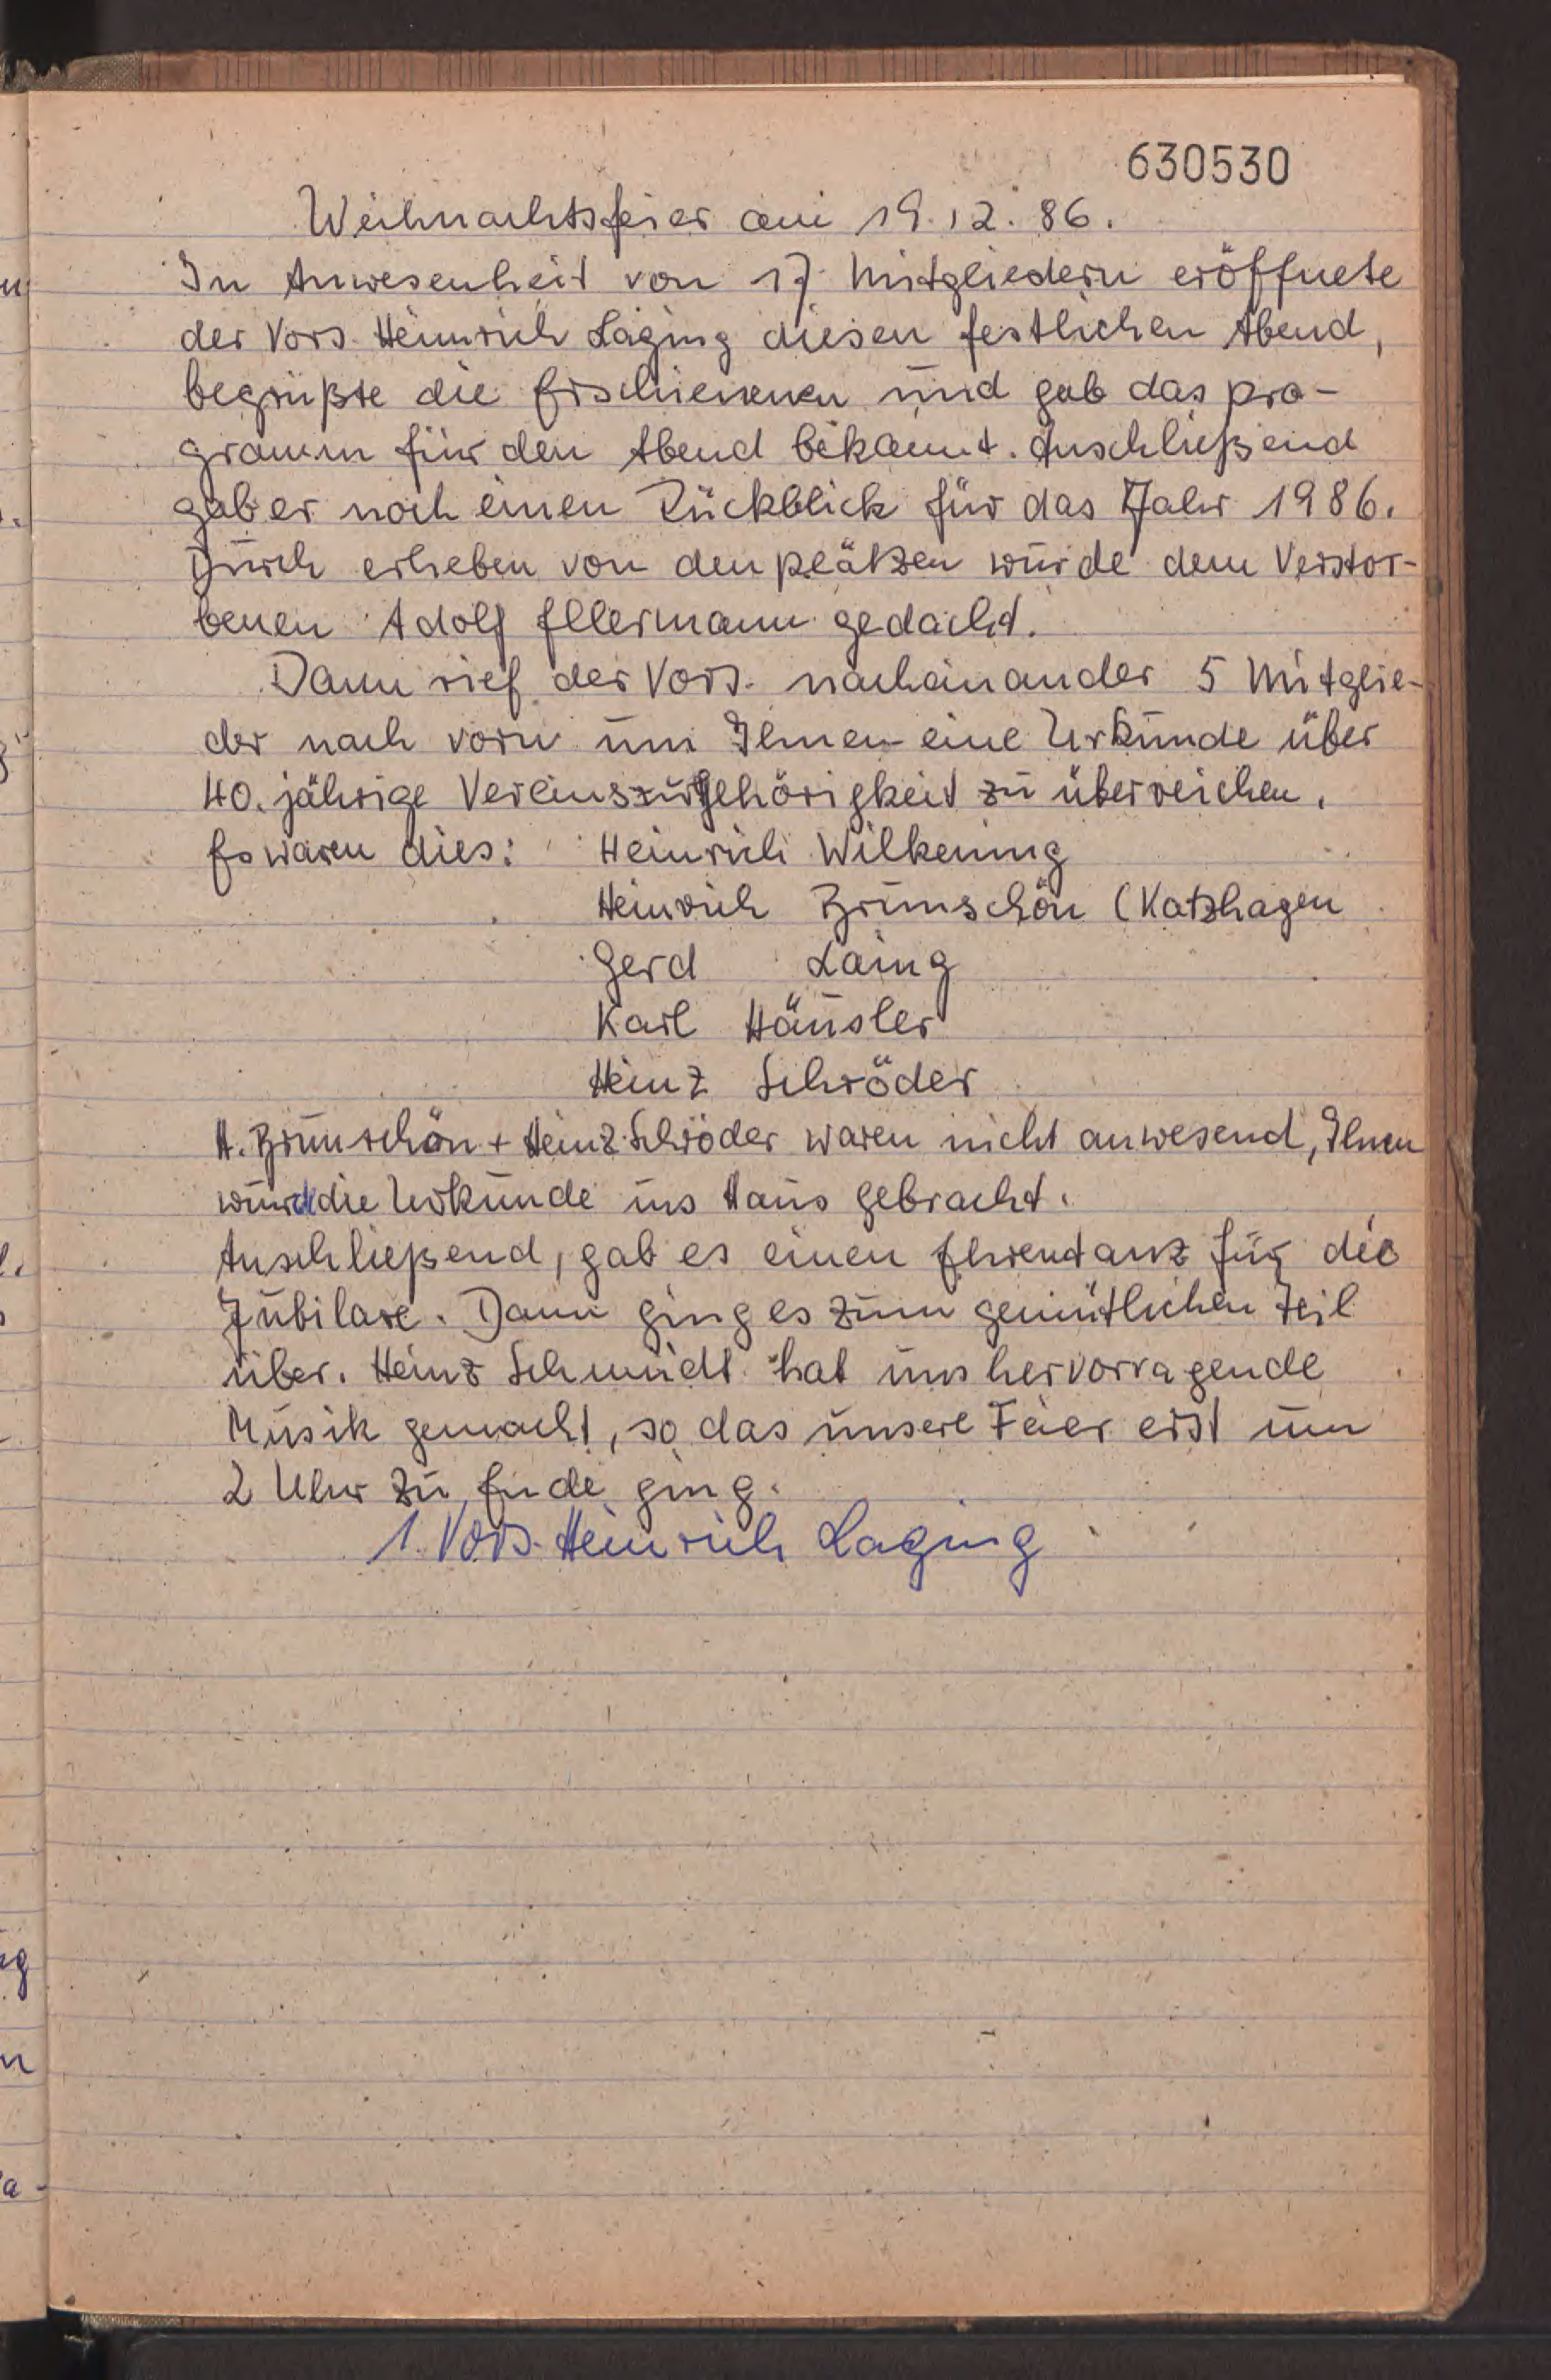 630530
Weihnachtsfeier am 19.12.86.
In Anwesenheit von 17 Mitgliedern eröffnete
der Vors. Heinrich Laging diesen festlichen Abend,
begrüßte die Erschienenen und gab das pro-
gramm für den Abend bekannt. Anschließend
gab er noch einen Rückblick für das Jahr 1986.
Durch erheben von den plätzen wurde dem Verstor-
benen Adolf Ellermann gedacht.
Dann rief der Vors. nacheinander 5 Mitglie-
der nach vorn um Ihnen eine Urkunde über
40. jährige Vereinszugehörigkeit zu überreichen.
Es waren dies: Heinrich Wilkening
Heinrich Brunschön (Katzhagen
Gerd Laing
Karl Häusler
Heinz Schröder
H. Brunschön + Heinz Schröder waren nicht anwesend, Ihnen
wurd die Urkunde ins Haus gebracht.
Anschließend, gab es einen Ehrentanz für die
Jubilare. Dann ging es zum gemütlichen Teil
über. Heinz Schmidt hat uns hervorragende
Musik gemacht, so das unsere Feier erst um
2 Uhr zu Ende ging.
1. Vors. Heinrich Laging